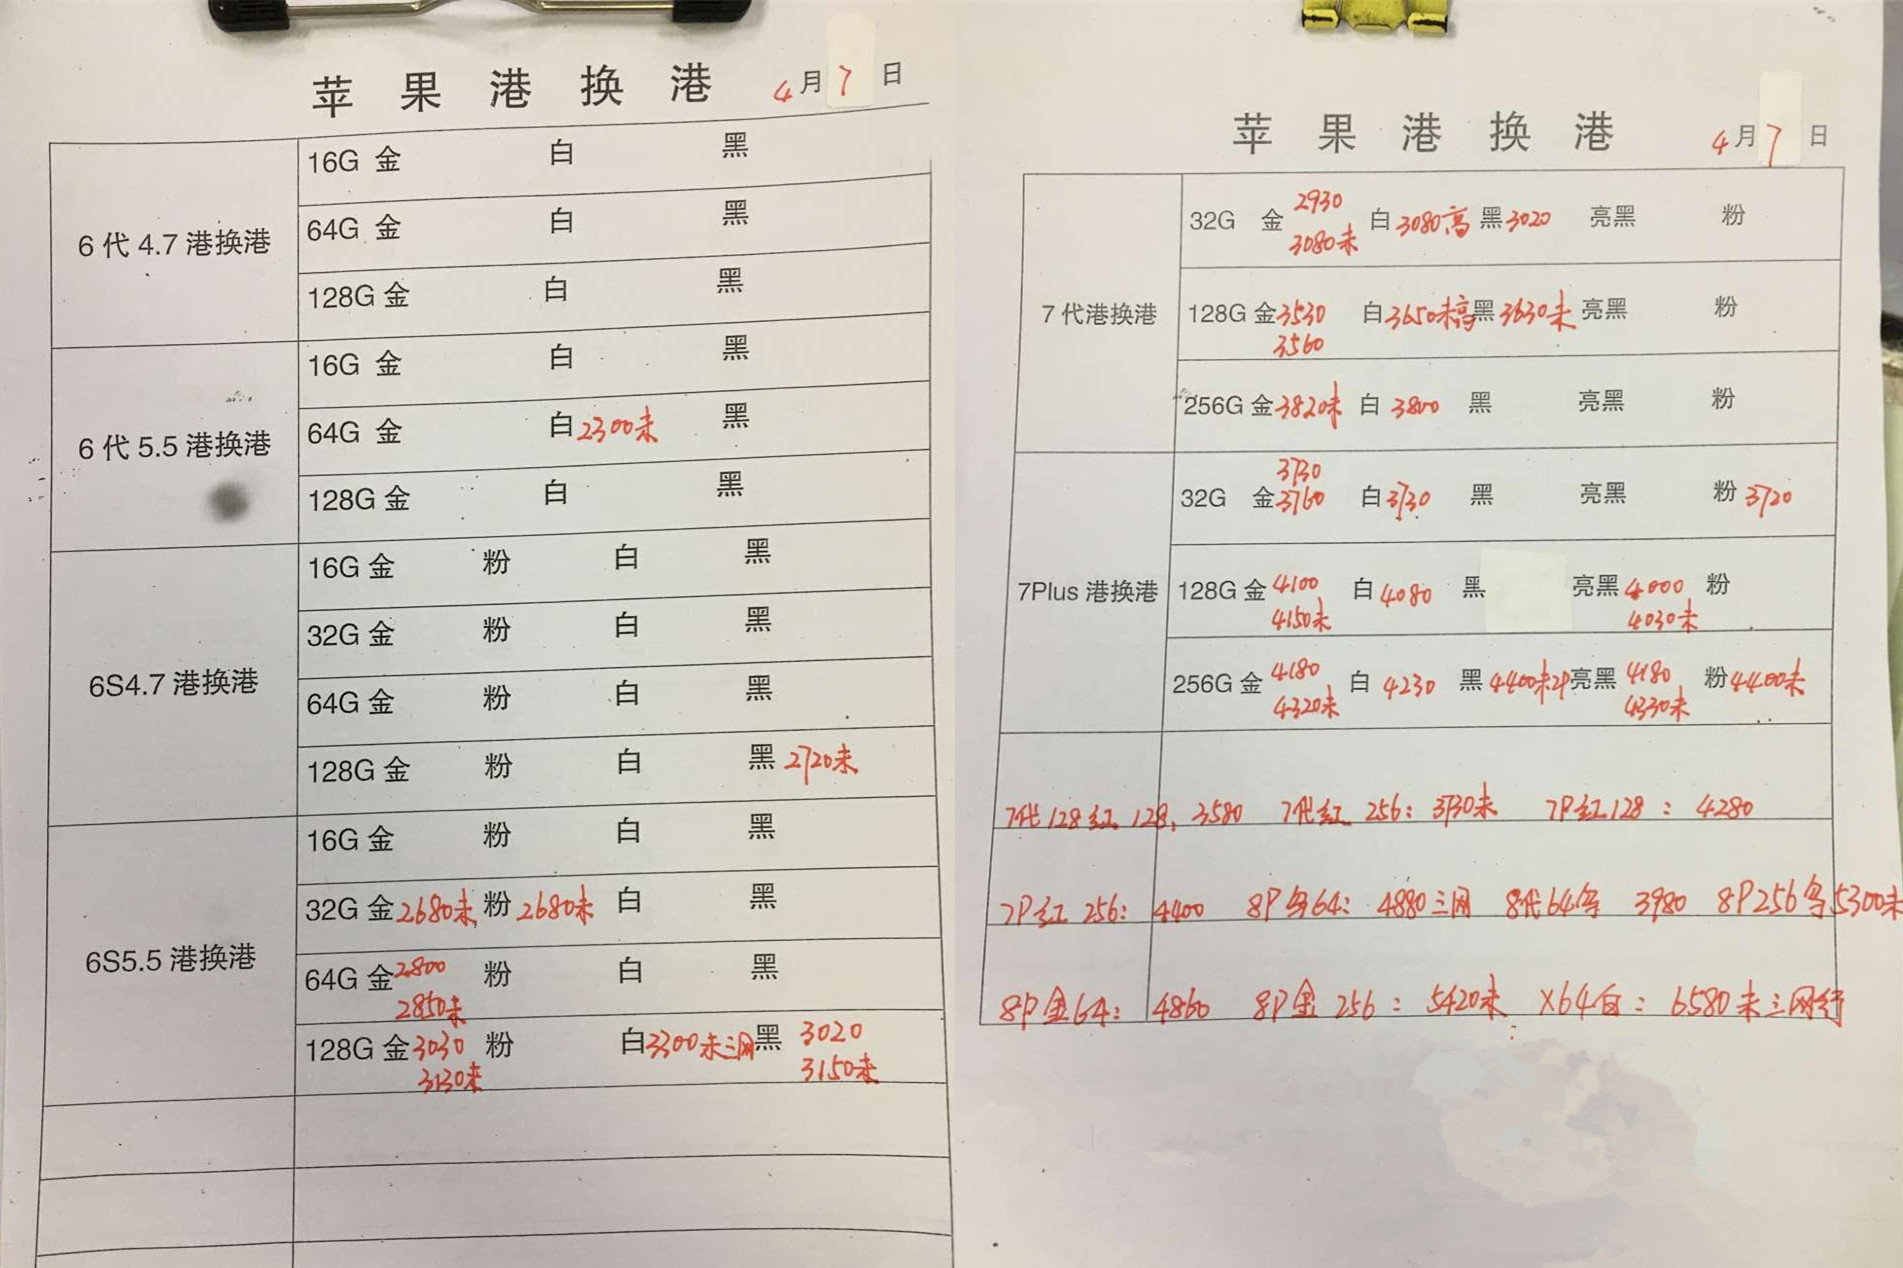 苹果港换港 4月7日
6代4.7港换港
16G 金 白 黑
64G 金 白 黑
128G 金 白 黑
6代5.5港换港
16G 金 白 黑
64G 金 白2300未 黑
128G 金 白 黑
6S4.7港换港
16G 金 粉 白 黑
32G 金 粉 白 黑
64G 金 粉 白 黑
128G 金 粉 白 黑2720未
6S5.5港换港
16G 金 粉 白 黑
32G 金2680未 粉2680未 白 黑
64G 金2800 粉 白 黑
2850未
128G 金3030 粉 白3300未三网 黑3020
3130未 3150未
苹果港换港 4月7日
7代港换港
2930
32G 金 白3080高 黑3020 亮黑 粉
3080未
128G 金3530 白3650未高 黑3630未 亮黑 粉
3560
256G 金3820未 白3800 黑 亮黑 粉
7Plus港换港
3730
32G 金3760 白3730 黑 亮黑 粉3720
128G 金4100 白4080 黑 亮黑4000 粉
4150未 4030未
256G 金4180 白4230 黑4400未2P 亮黑4180 粉4400未
4320未 4330未
7代128红 128, 3580 7代红 256: 3730未 7P红128: 4280
7P红 256: 4400 8P 64: 4880三网 8代64 3980 8P256 5300未
8P金64: 4860 8P金 256: 5420未 X64白: 6580未三网